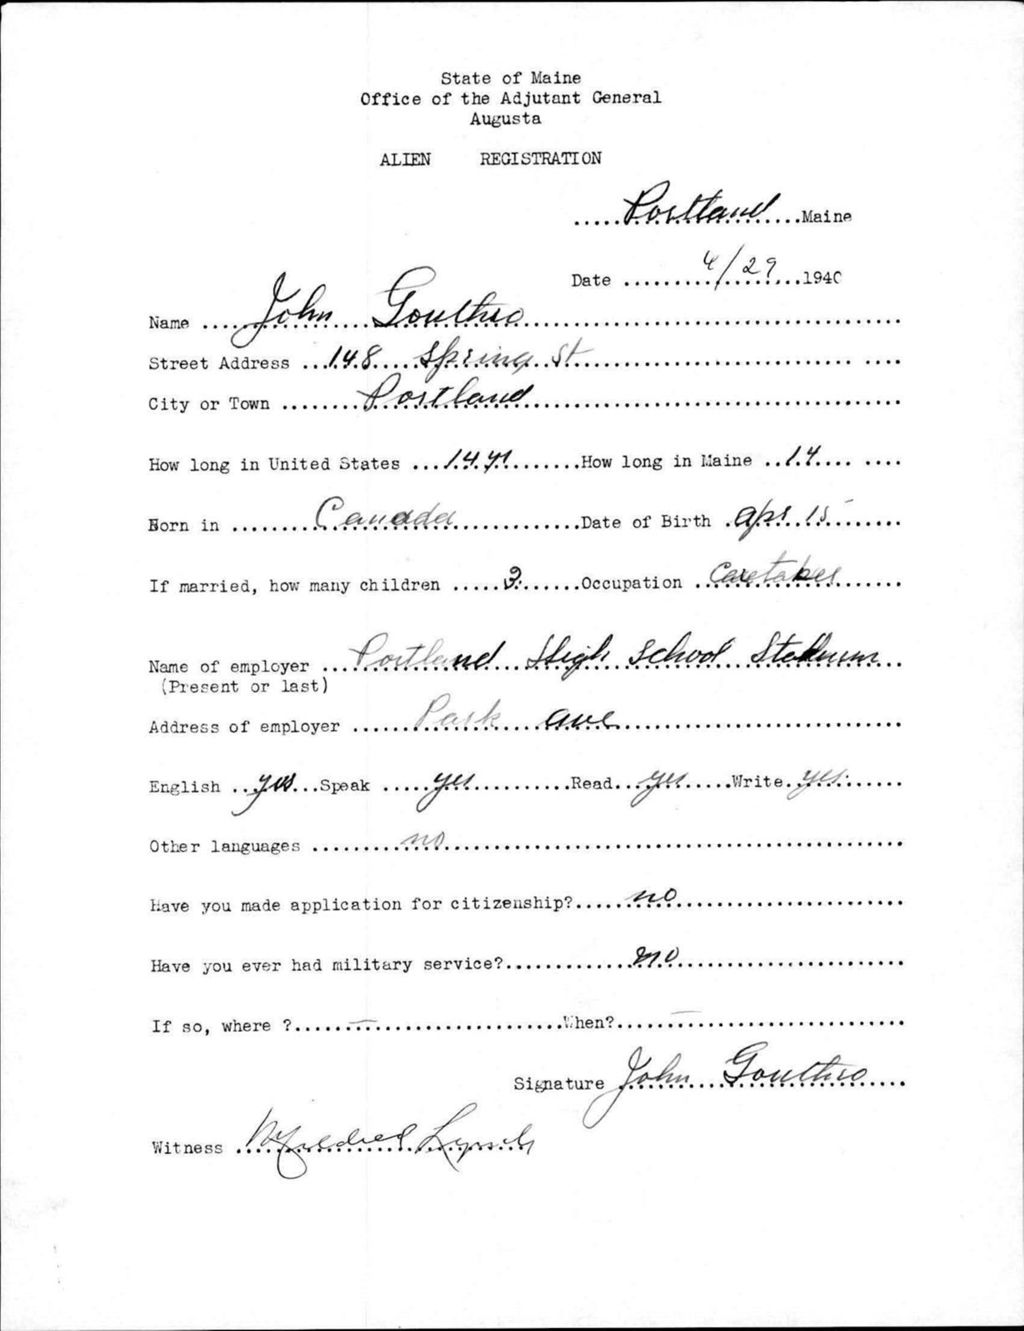 State of Maine
Office of the Adjutant General
Augusta
ALIEN REGISTRATION
Portland Maine
Date 4/29 1940
Name John Gouthro
Street Address 148 Spring St
City or Town Portland
How long in United States 14 How long in Maine 14
Born in Canada Date of Birth Apr 15
If married, how many children Occupation Caretaker
Name of employer Portland High School Stadium
(Present or last)
Address of employer Park Ave
English yes Speak yes Read yes Write yes
Other languages no
Have you made application for citizenship? no
Have you ever had military service? no
If so, where ? — When? —
Signature John Gouthro
Witness Mildred